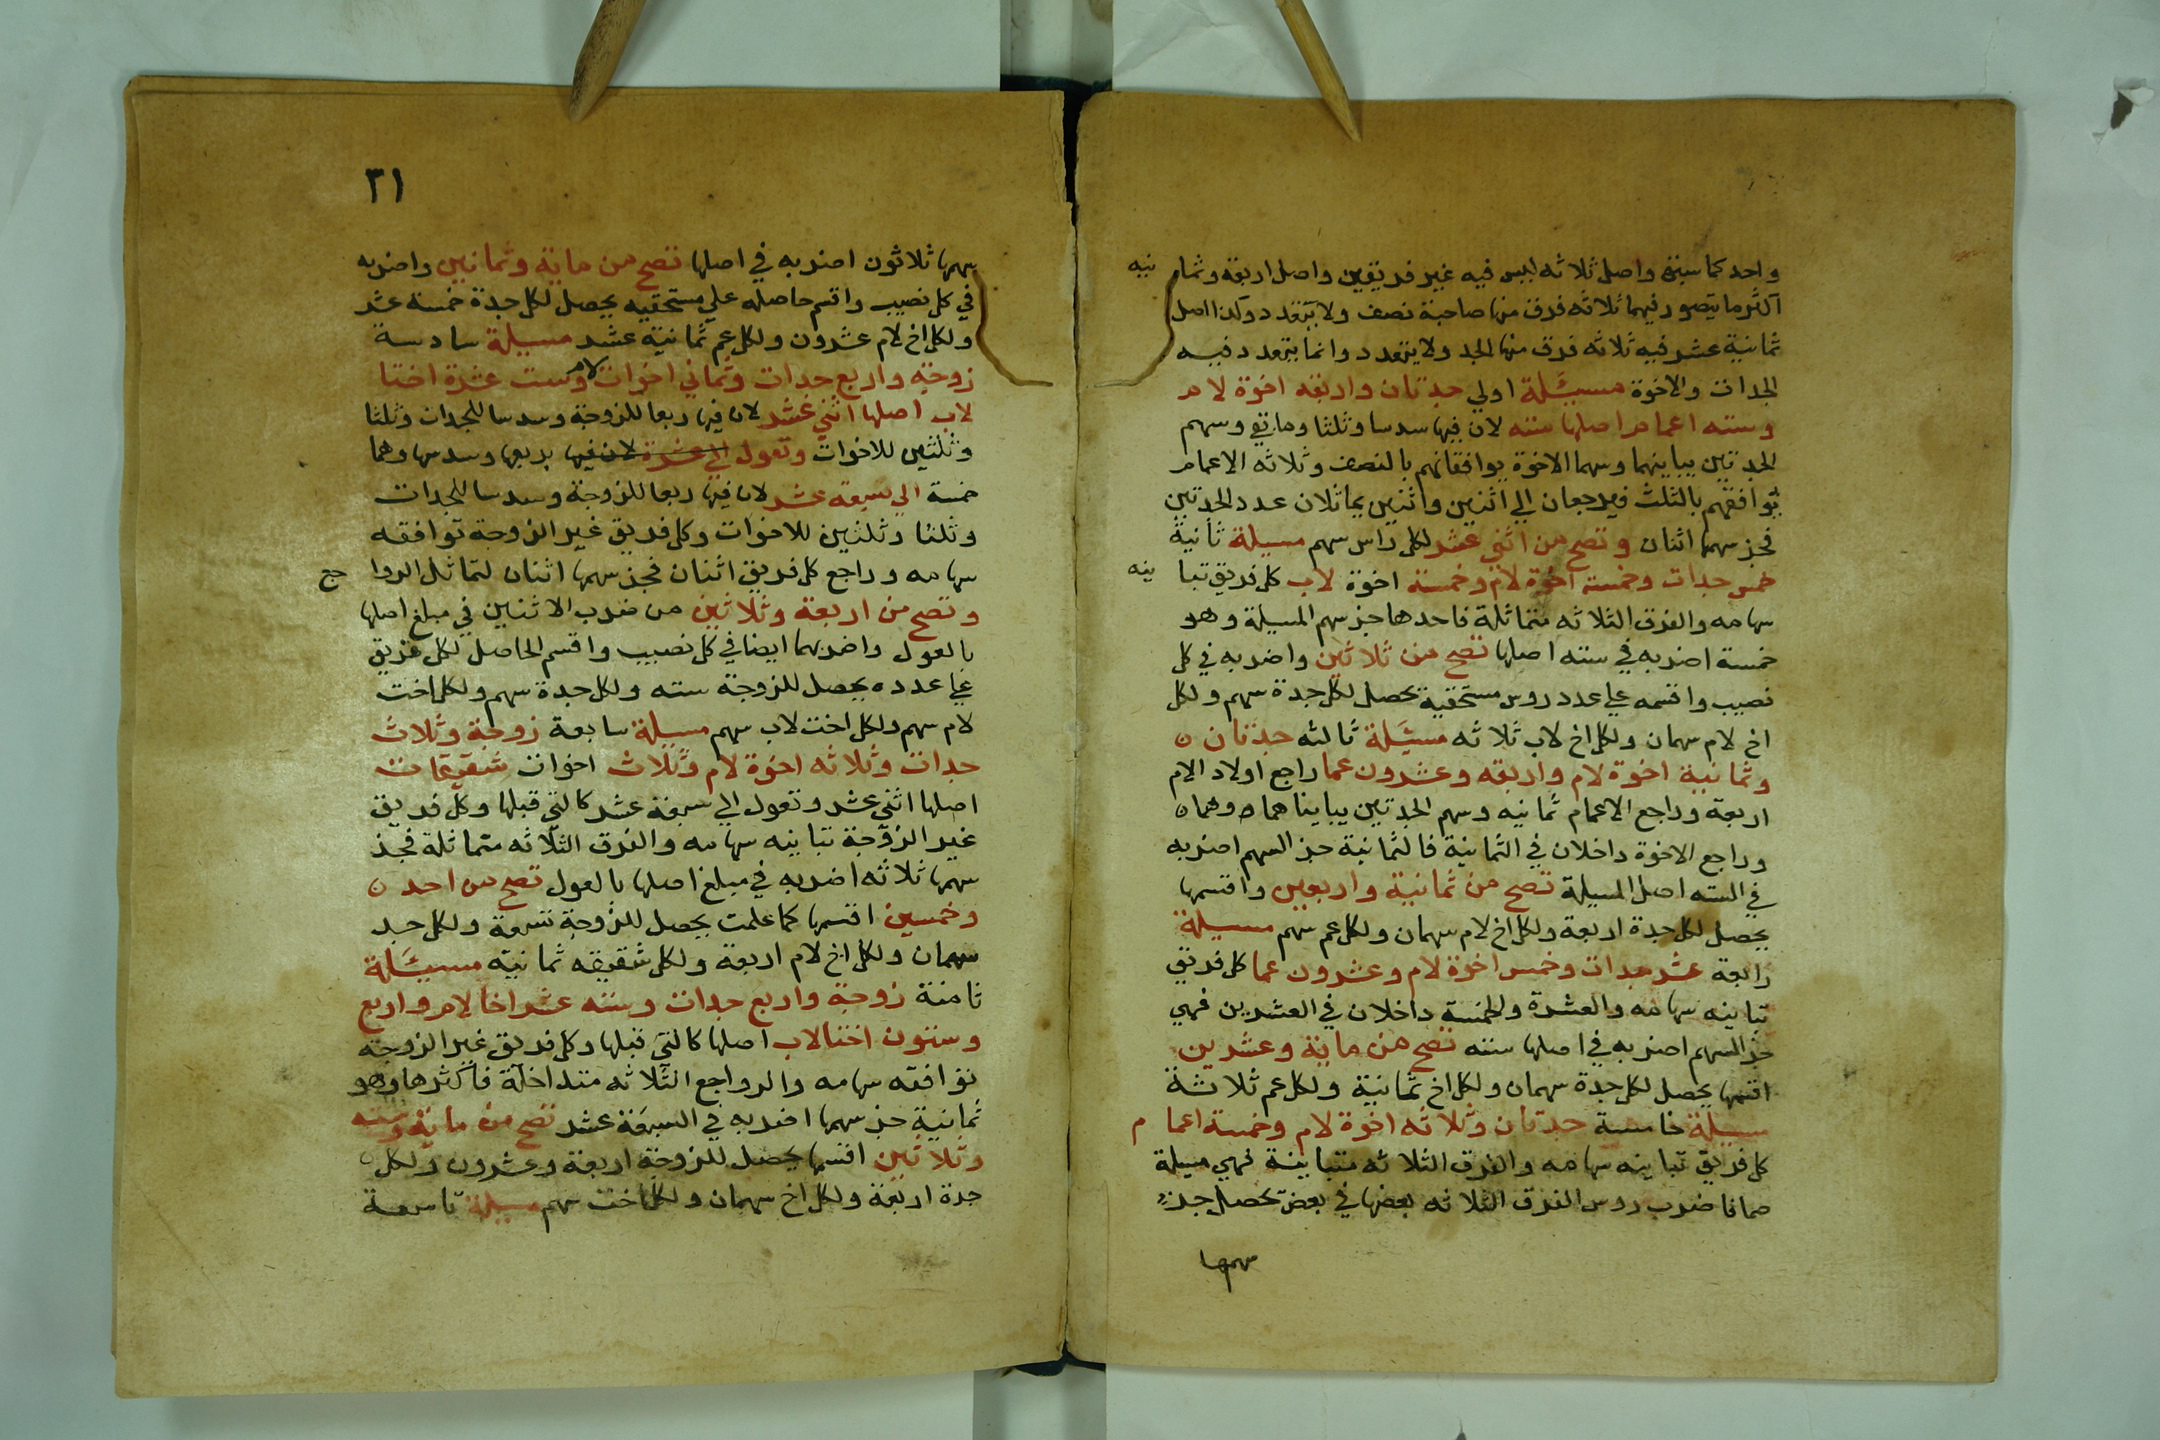 واحد كما سبق واصل ثلاثه ليس فيه غير فريقين واصل اربعة وثما نيه
اكثر ما يتصور فيهما ثلاثه فرق منها صاحبة نصف ولا يتعدد وكذا اصل
ثمانية عشر فيه ثلاثه فرق منها الجد ولا يتعدد وانما يتعدد فيه
الجدات والاخوة مسئلة اولي جدتان واربعه اخوة لام
وسته اعمام اصلها سته لان فيها سدسا وثلثا وما بقي وسهم
الجدتين يباينهما وسهما الاخوة يوافقانهم بالنصف وثلاثه الاعمام
توافقهم بالثلث فيرجعان الي اثنين واثنين يماثلان عدد الجدتين
فجز سهمها اثنان وتصح من اثني عشر لكل راس سهم مسيلة ثانية
خمس جدات وخمسة اخوة لام وخمسة اخوة لاب كل فريق تبا ينه
سهامه والفرق الثلاثه متماثلة فاحدها جز سهم المسيلة وهو
خمسة اضربه في سته اصلها تصح من ثلاثين واضربه في كل
نصيب واقسمه علي عدد روس مستحقيه يحصل لكل جدة سهم ولكل
اخ لام سهمان ولكل اخ لاب ثلاثه مسئلة ثالثه جدتان
وثمانية اخوة لام واربعه وعشرون عما راجع اولاد الام
اربعة وراجع الاعمام ثمانيه وسهم الجدتين يباينا هما وهما
وراجع الاخوة داخلان في الثمانية فالثمانية جز السهم اضربه
في السته اصل المسيلة تصح من ثمانية واربعين واقسمها
يحصل لكل جدة اربعة ولكل اخ لام سهمان ولكل عم سهم مسيلة
رابعة عشر جدات وخمس اخوة لام وعشرون عما كل فريق
تباينه سهامه والعشرة والخمسة داخلان في العشرين فهي
جز السهم اضربه في اصلها سته تصح من ماية وعشرين
اقسمها يحصل لكل جدة سهمان ولكل اخ ثمانية ولكل عم ثلاثة
مسيلة خامسة جدتان وثلاثه اخوة لام وخمسة اعما م
كل فريق تباينه سهامه والفرق الثلاثه متباينة فهي مسيلة
صما فاضرب روس الفرق الثلاثه بعضها في بعض يحصل جز
سهمها
٣١
سهمها ثلاثون اضربه في اصلها تصح من ماية وثمانين واضربه
في كل نصيب واقسم حاصله علي مستحقيه يحصل لكل جدة خمسة عشر
ولكل اخ لام عشرون ولكل عم ثمانية عشر مسيلة سادسة
زوجة واربع جدات وثماني اخوات لام وست عشرة اختا
لاب اصلها اثني عشر لان فيها ربعا للزوجة وسدسا للجدات وثلثا
وثلثين للاخوات وتعول الي عشرة لان فيها بربعها وسدسها وهما
خمسة الي سبعة عشر لان فيها ربعا للزوجة وسدسا للجدات
وثلثا وثلثين للاخوات وكل فريق غير الزوجة توافقه
سهامه وراجع كل فريق اثنان فجز سهمها اثنان لتماثل الروا جع
وتصح من اربعة وثلاثين من ضرب الاثنين في مبلغ اصلها
بالعول واضربهما ايضا في كل نصيب واقسم الحاصل لكل فريق
علي عدده يحصل للزوجة سته ولكل جدة سهم ولكل اخت
لام سهم ولكل اخت لاب سهم مسيلة سابعة زوجة وثلاث
جدات وثلاثه اخوة لام وثلاث اخوات شقيقات
اصلها اثني عشر وتعول الي سبعة عشر كالتي قبلها وكل فريق
غير الزوجة تباينه سهامه والفرق الثلاثه متماثلة فجز
سهمها ثلاثه اضربه في مبلغ اصلها بالعول تصح من احد
وخمسين اقسمها كما علمت يحصل للزوجة تسعة ولكل جد
سهمان ولكل اخ لام اربعة ولكل شقيقه ثمانيه مسئلة
ثامنة زوجة واربع جدات وسته عشر اخا لام واربع
وستون اختا لاب اصلها كالتي قبلها وكل فريق غير الزوجة
توافقه سهامه والرواجع الثلاثه متداخلة فاكثرها وهو
ثمانية جز سهمها اضربه في السبعة عشر تصح من ماية وسته
وثلاثين اقسمها يحصل للزوجة اربعة وعشرون ولكل
جدة اربعة ولكل اخ سهمان ولكل اخت سهم مسيلة تاسعة